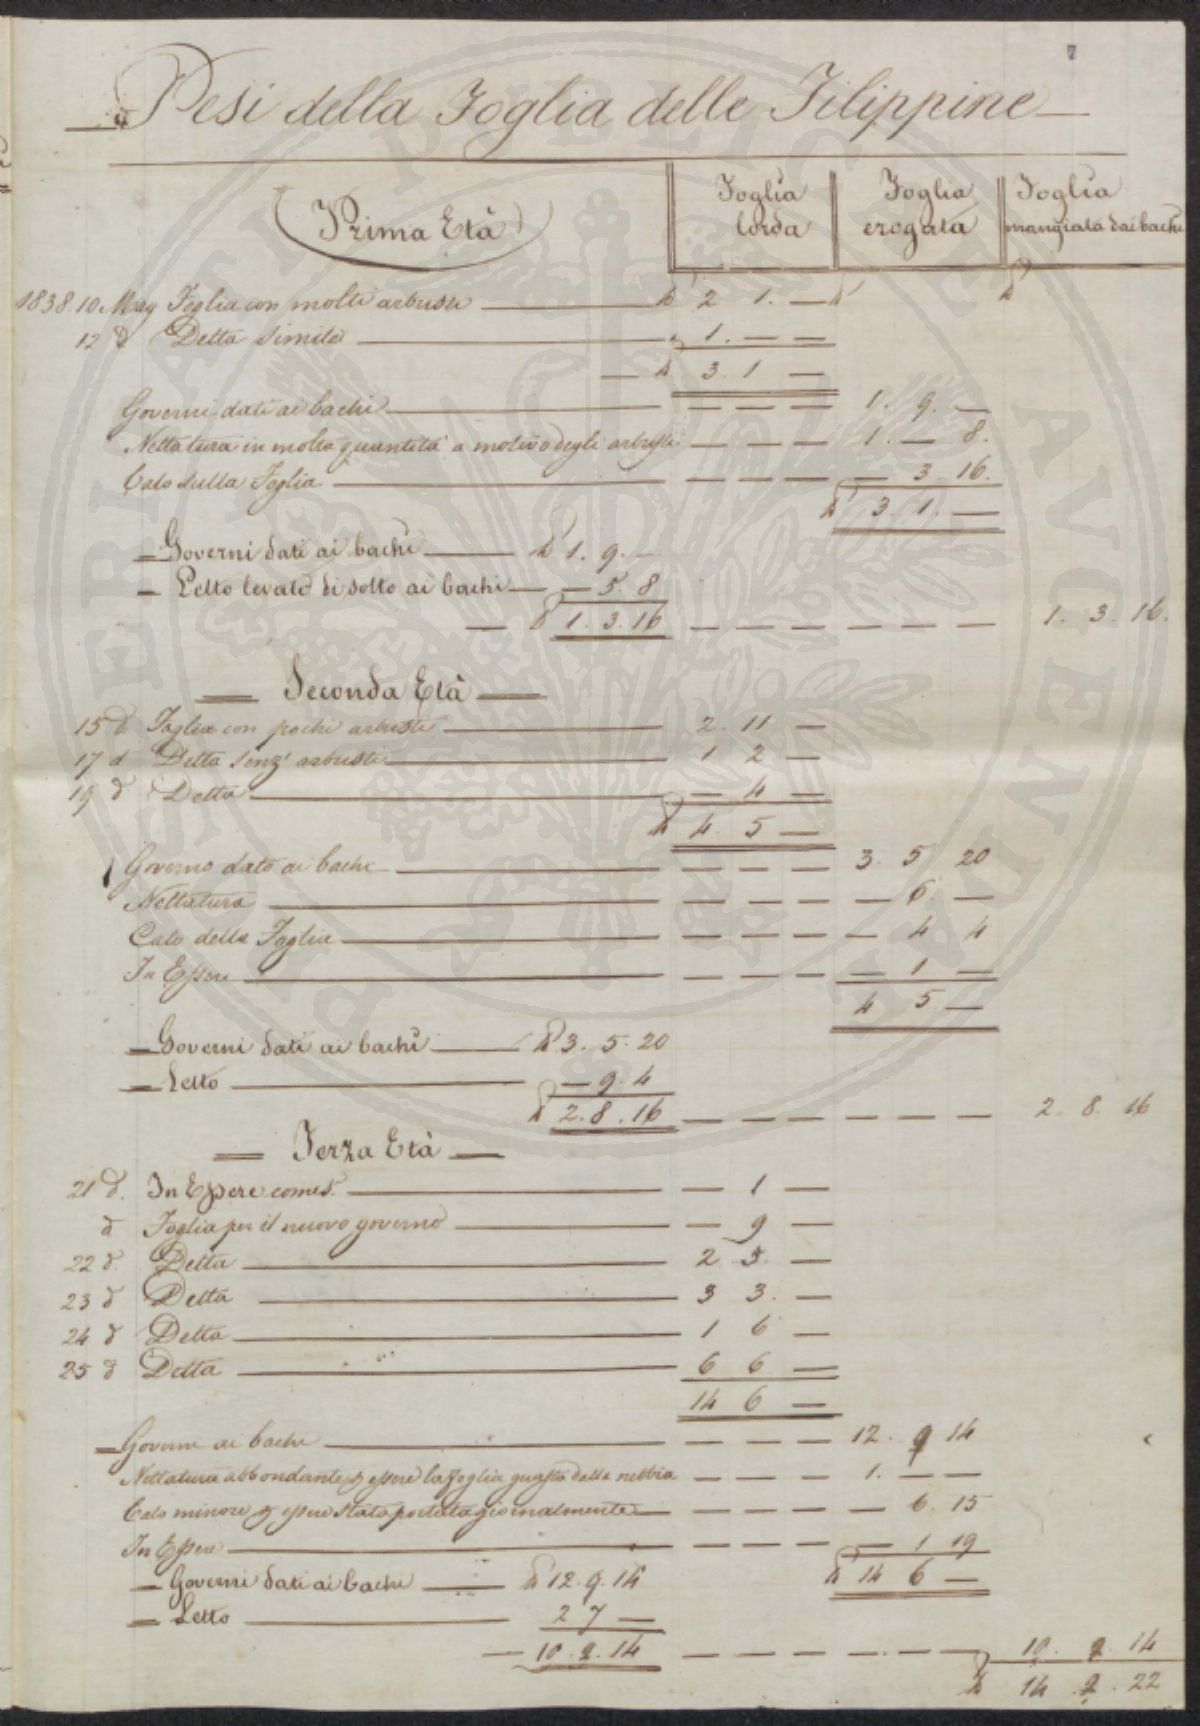 7
Pesi della Foglia delle Filippine
Prima Età
Foglia lorda
Foglia erogata
Foglia mangiata dai bachi
1838. 10 Mag Foglia con molti arbusti — 2 1. —
12 d Detta simile — 1. — —
— 3. 1 —
Governi dati ai bachi — — — — 1. 9. —
Nettatura in molta quantità a motivo degli arbusti — — — 1. — 8.
Calo sulla Foglia — — — — — 3. 16.
3. 1. —
= Governi dati ai bachi — 1. 9. —
= Letto levato di sotto ai bachi — — 5. 8
— 1. 3. 16 — — — — — — 1. 3. 16.
= Seconda Età =
15 d Foglia con pochi arbusti — 2. 11 —
17 d Detta senz' arbusti — 1 2. —
19 d Detta — — 4 —
4. 5 —
Governo dato ai bachi — — — — 3. 5 20
Nettatura — — — — — 6. —
Calo della Foglia — — — — — 4 4
In Essere — — — — — 1 —
4 5 —
= Governi dati ai bachi — 3. 5. 20
= Letto — — 9. 4
2. 8. 16 — — — — — — 2. 8. 16
= Terza Età =
21 d. In Essere come s. — — 1 —
d Foglia per il nuovo governo — — 9 —
22 d. Detta — 2 5. —
23 d Detta — 3 3. —
24 d Detta — 1 6 —
25 d Detta — 6 6 —
14 6 —
= Governi ai bachi — — — — 12. 9 14
Nettatura abbondante p essere la foglia guasta dalla nebbia — — — 1. — —
Calo minore p essere stata portata giornalmente — — — — — 6. 15
In Essere — — — — — 1 19
14 6 —
= Governi dati ai bachi — 12. 9. 14
= Letto — 2 7 —
— 10. 2. 14 — — — — — — 10. 2. 14
14 2. 22
PRIVATIS PVBLICE AVGENDA